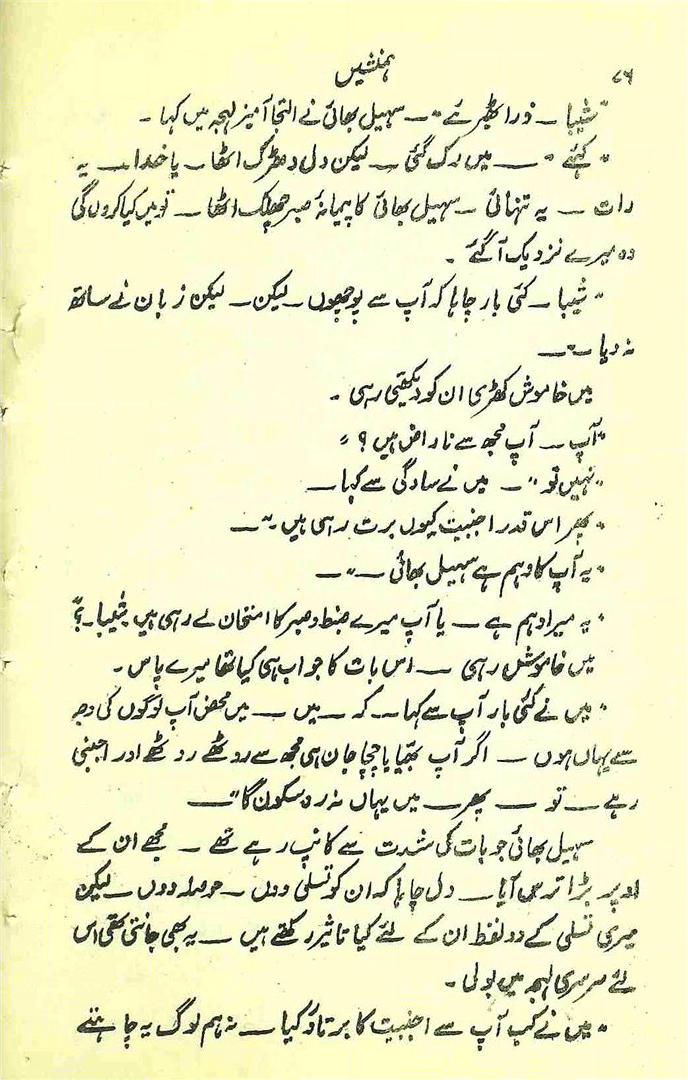 ۷۶ ہمنشیں
"شیبا ــ ذرا ٹھہرئے" ــ سہیل بھائی نے التجا آمیز لہجہ میں کہا ۔
"کہئے" ــ میں رک گئی ــ لیکن دل دھڑک اٹھا ــ یا خدا ــ یہ
رات ــ یہ تنہائی ــ سہیل بھائی کا پیمانۂ صبر چھلک اٹھا ــ تو میں کیا کروں گی
وہ میرے نزدیک آ گئے ۔
"شیبا ــ کئی بار چاہا کہ آپ سے پوچھوں ــ لیکن ــ لیکن زبان نے ساتھ
نہ دیا ــ" ــ
میں خاموش کھڑی ان کو دیکھتی رہی ۔
"آپ ــ آپ مجھ سے ناراض ہیں ؟"
"نہیں تو" ــ میں نے سادگی سے کہا ــ
"پھر اس قدر اجنبیت کیوں برت رہی ہیں" ــ
"یہ آپ کا وہم ہے سہیل بھائی ــ" ــ
"یہ میرا وہم ہے ــ یا آپ میرے ضبط و صبر کا امتحان لے رہی ہیں شیبا ــ؟"
میں خاموش رہی ــ اس بات کا جواب ہی کیا تھا میرے پاس ۔
"میں نے کئی بار آپ سے کہا ــ کہ ــ میں ــ میں محض آپ لوگوں کی وجہ
سے یہاں ہوں ــ اگر آپ بھیا یا چچا جان ہی مجھ سے روٹھے روٹھے اور اجنبی
رہے ــ تو ــ پھر ــ میں یہاں نہ رہ سکون گا" ــ
سہیل بھائی جوبات کی شدت سے کانپ رہے تھے ــ مجھے ان کے
اوپر بڑا ترس آیا ــ دل چاہا کہ ان کو تسلی دوں ــ حوصلہ دوں ــ لیکن
میری تسلی کے دو لفظ ان کے لئے کیا تاثیر رکھتے ہیں ــ یہ بھی جانتی تھی اس
لئے سرسری لہجہ میں بولی ۔
"میں نے کب آپ سے اجنبیت کا برتاؤ کیا ــ نہ ہم لوگ یہ چاہتے